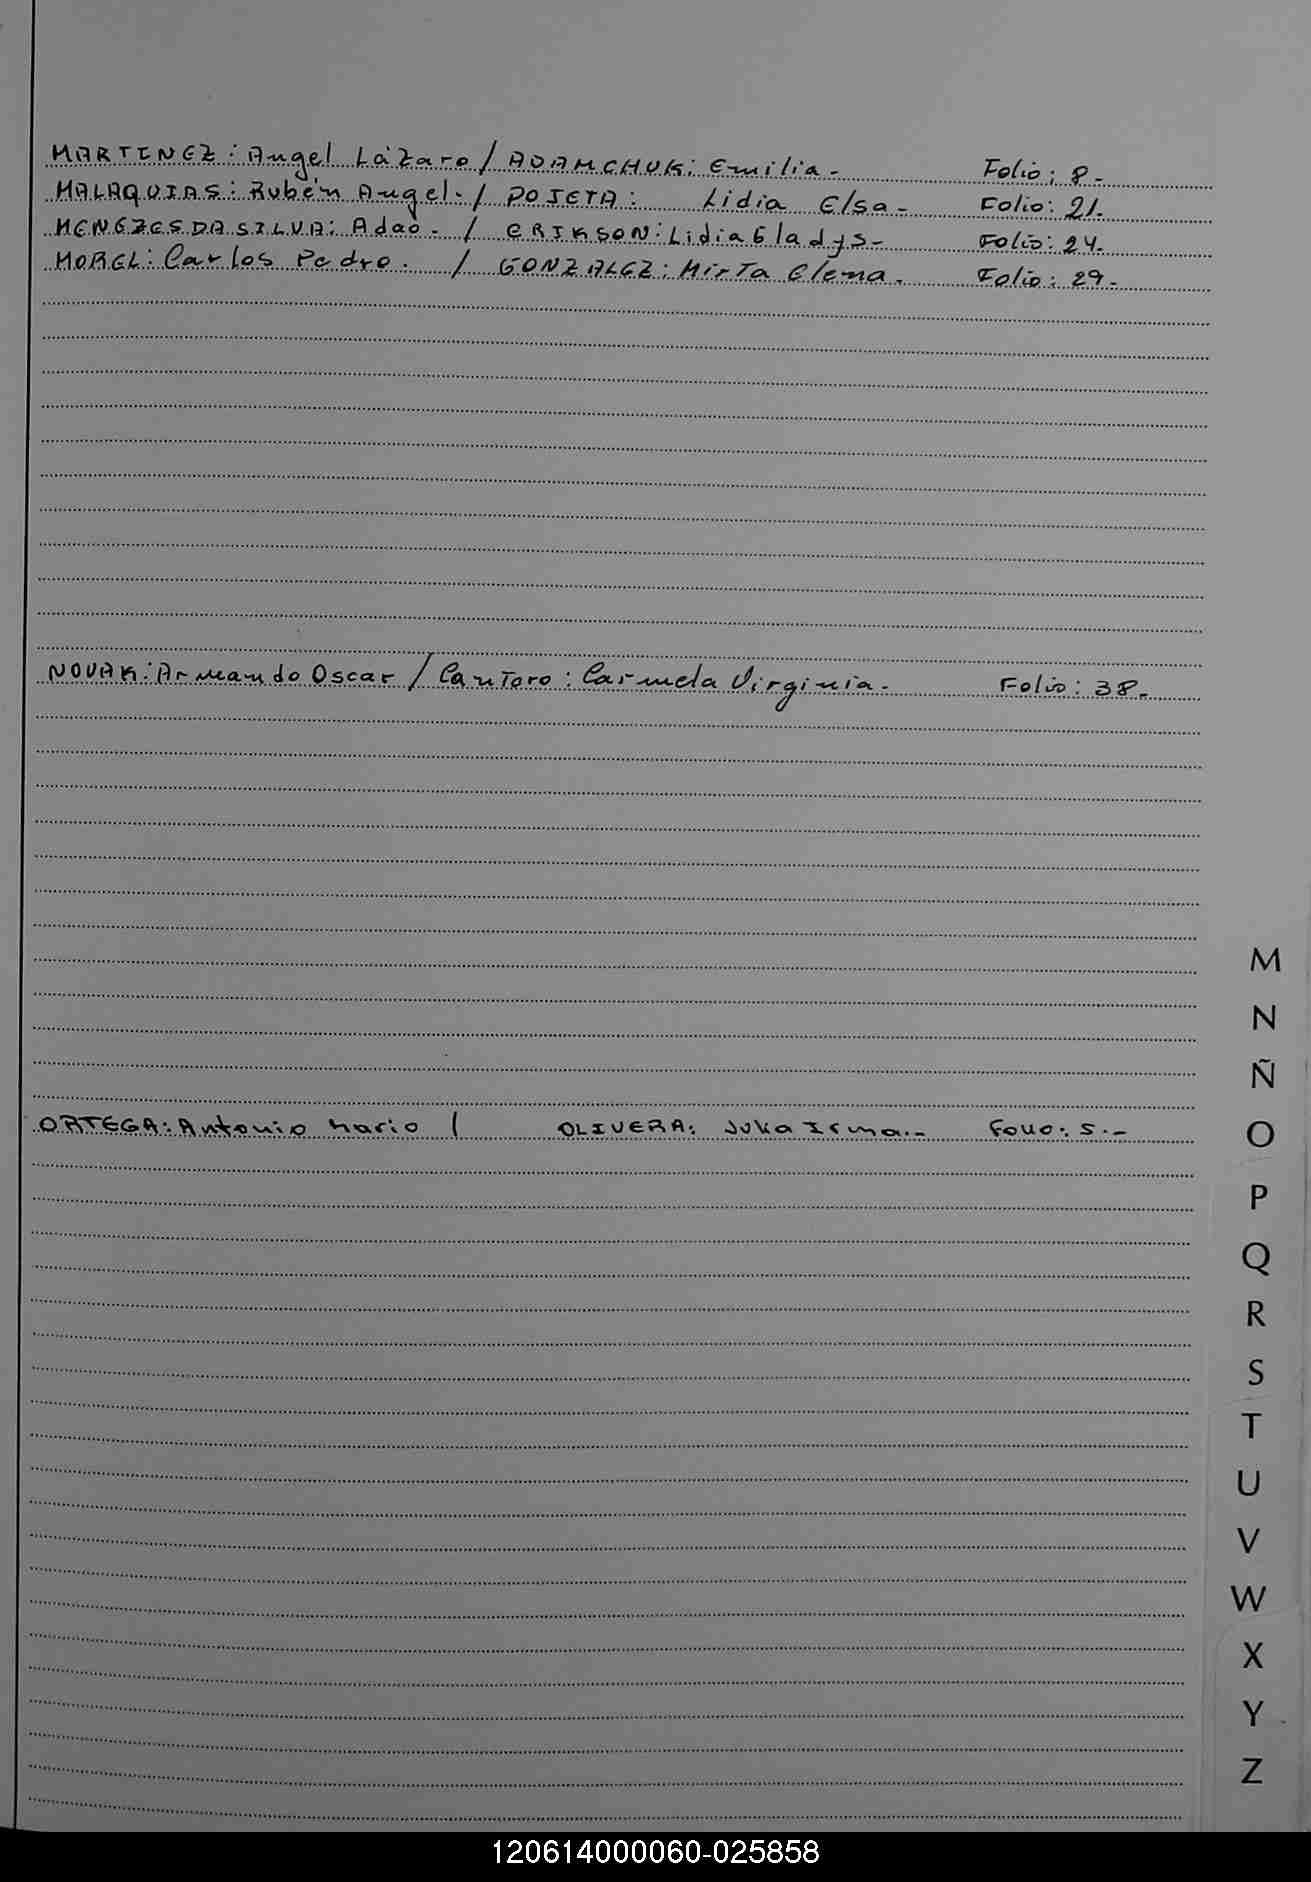 MARTINEZ: Angel Lázaro / ADAMCHUK: Emilia.- Folio: 8.-
MALAQUIAS: Rubén Angel.- / POSETA: Lidia Elsa.- Folio: 21.-
MENEZES DA SILVA: Adao.- / ERIKSON: Lidia Gladys.- Folio: 24.-
MOREL: Carlos Pedro. / GONZALEZ: Mirta Elena. Folio: 29.-
NOVAK: Armando Oscar / Cantoro: Carmela Virginia.- Folio: 38.-
ORTEGA: Antonio Mario / OLIVERA: Julia Irma.- Folio: 5.-
M
N
Ñ
O
P
Q
R
S
T
U
V
W
X
Y
Z
120614000060-025858